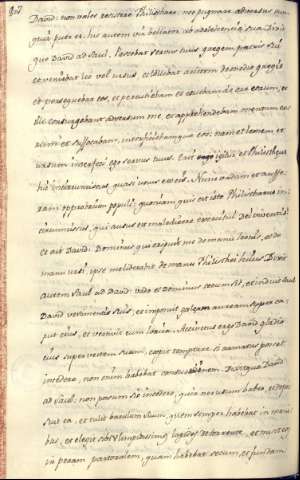 David: non vales resistere Philistheo, nec pugnare adversus eum,
quia puer es, hic autem vir bellator ab adolescentia sua. Dixit
que David ad Saul. Pascebat servus tuus gregem patris sui
et veniebat leo vel ursus et tollebat arietem de medio gregis
et persequebar eos, et percutiebam et eruebamque
illi consurgebant adversum me, et apprehendebam mentum eo
rum et suffocabam, interficiebamque eos: nam et leonem et
ursum interfeci ego servus tuus. Erit ergo igitur et Philistheus
hic incircumcisus, quasi unus ex eis. Nunc vadam et aufe
ram opprobrium populi, quoniam quis est iste Philistheus in
circumcisus, qui ausus est maledicere exercitui Dei viventis?
et ait David: Dominus qui eripuit me de manu leonis, et de
manu ursi, ipse me liberabit de manu Philisthei huius. Dixit
autem Saul ad David: vade et Dominus tecum sit, et induit Saul
David vestimentis suis, et imposuit galeam aeream super ca
put eius, et vestivit eum lorica. Accinctus ergo David gladio
eius super vestem suam, coepit tentare si armatus posset
incedere, non enim habebat consuetudinem. Dixitque David
ad Saul: non possum sic incedere, quia non usum habeo, et depo
suit ea, et tulit baculum suum quem semper habebat in mani
bus, et elegit sibi limpidissimos lapides de torrente, et misit eos
in peram pastoralem, quam habebat secum, et fundam